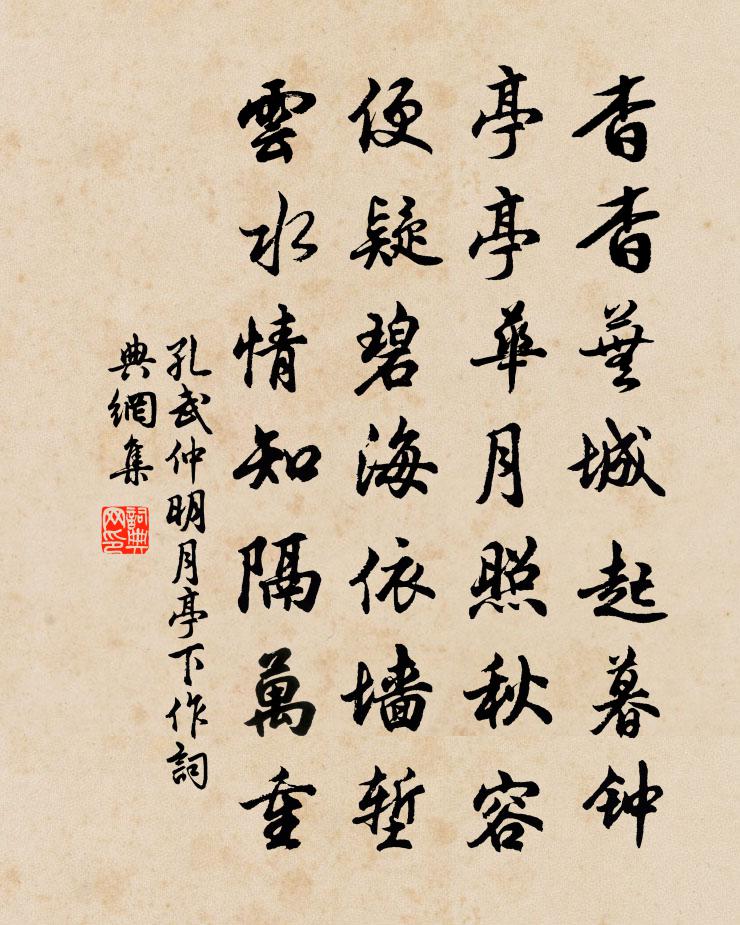 杳杳蕪城起暮钟
亭亭華月照秋容
便疑碧海依墙堑
雲水情知隔萬重
孔武仲明月亭下作詞
典網集
詞典网印